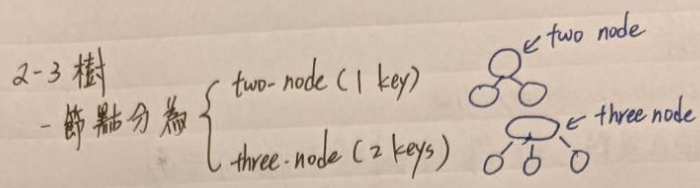 2-3 樹
- 節點分為
two-node (1 key)
three-node (2 keys)
two node
three node